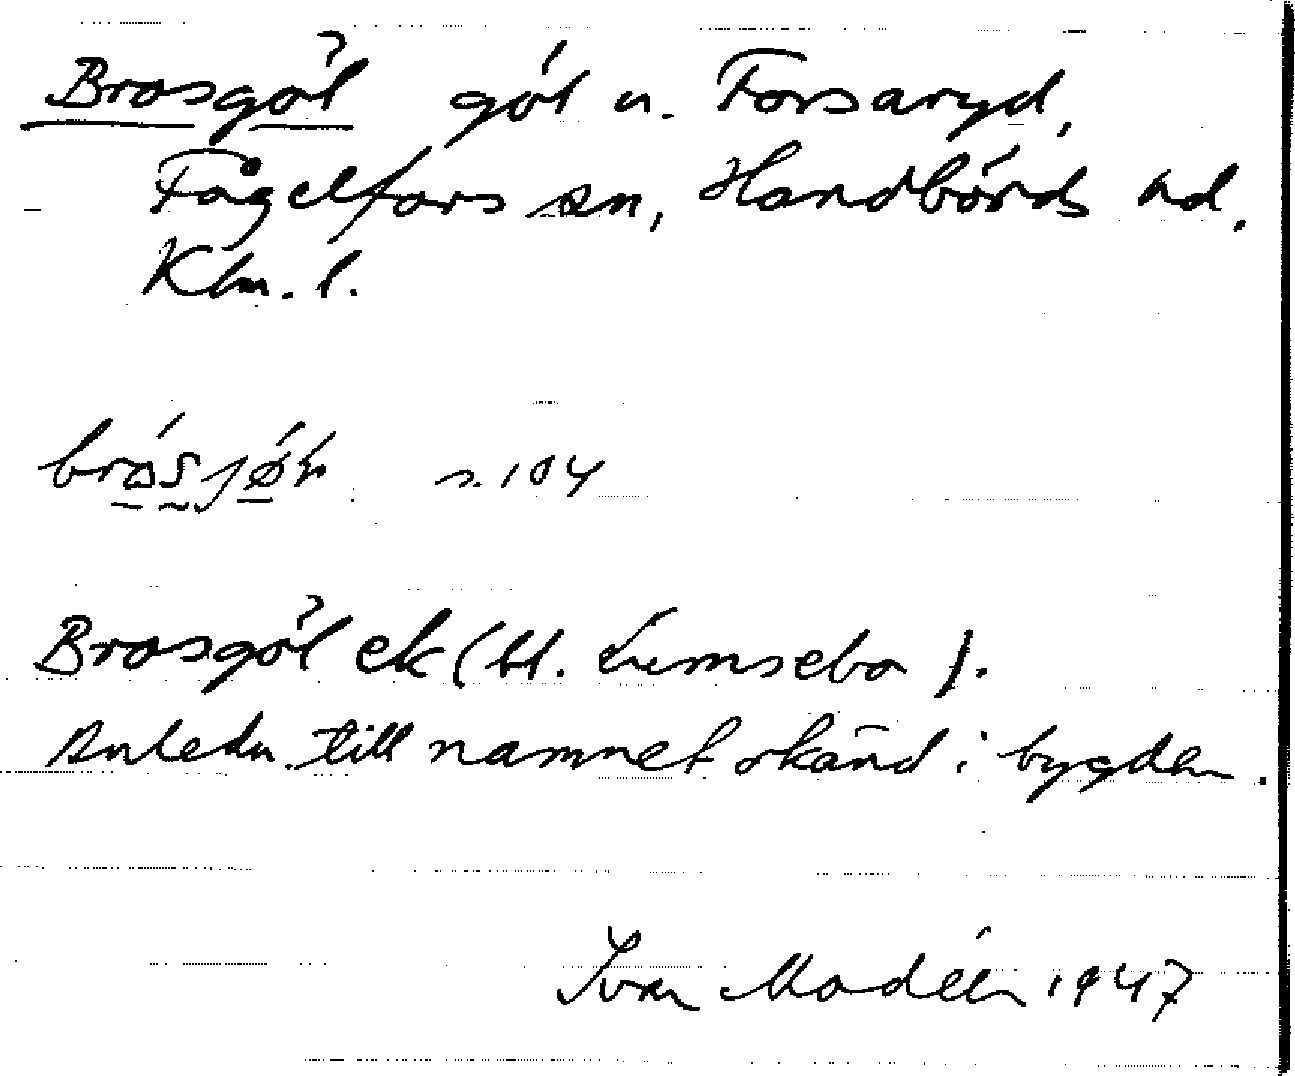 Brosgöl göl n. Forsaryd,
Fågelfors sn, Handbörds hd.
Klm. l.
s. 104
Brosgöl ek (bl.
Anledn. till namnet okänd i bygden.
Ivar Modéer 1947